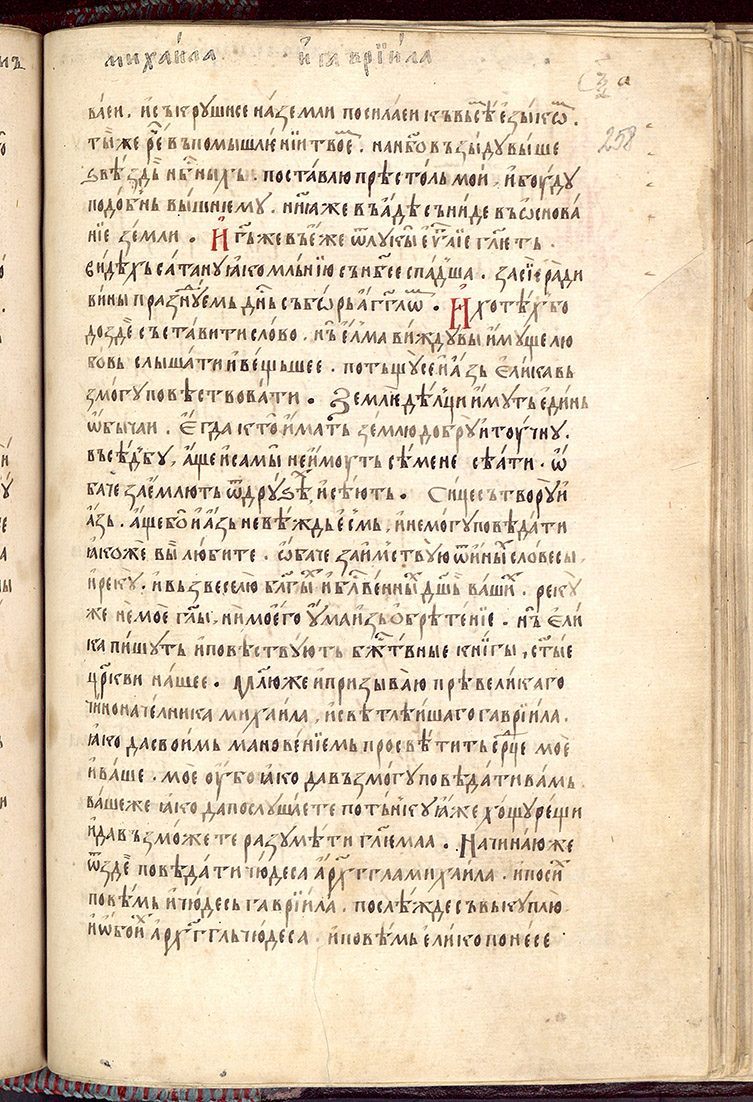 михаи́ла и҆ гаврїи́ла
258
ваеи. и҆ съкрꙋшисе на земли посилаеи къ въсѣ ѥ҆зы́кѡⷨ.
ты́ же рⷱ҇е въ помышлѥ́нїи твоеⷨ. на н҃бо възы́дꙋ вы́ше
ѕвѣ́здь нбⷭ҇ныхъ. поставлю прѣстоль мои, и҆ бꙋ́дꙋ
подо́бнь вы́шнїемꙋ. нн҃ꙗ же въ а҆дѣ сънѝде въ ѡ҆снова́
нїе земли. И҆ гь҃ же въ е҆́же ѿ лꙋкы̀ еѵⷢ҇а́лїе гл҃ѥть.
видѣхъ сатанꙋ ꙗ҆ко мльнїю съ нб҃се спа́дша. за сїѐ ради
вины праⷥнꙋ́емь дн҃ь събѡ́рь а҆гг҃лѡⷨ. И҆ хотѣ́хь ꙋ҆бо
доздѐ съставити сло́во. нь҆ е҆́лма виждꙋ вы и҆мꙋще лю
бовь слы́шати и҆ ве́щьшее. потьщꙋсе и҆ а҆́зь е҆ли́ка вь
змогꙋ повѣствова́ти. Землѥдѣ́лци и҆мꙋть е҆ди́нь
ѡ҆бычаи. Е҆гда кто̀ и҆мать землю до́брꙋ и҆ тꙋ́чнꙋ.
въ сѣ́дбꙋ, а҆ще и҆ самы̀ не и҆мꙋть сѣ́мене сѣати. ѡ҆
баче заѥмлють ѿ дрꙋѕѣⷯ, и҆ сѣ́ють. Сице сътворꙋ̀ и҆
а҆зь. а҆ще бо̀ и҆ а҆зь невѣ́ждь е҆смь, и҆ не могꙋ повѣда́ти
ꙗ҆коже вы̀ любите. ѡ҆баче займствꙋю ѿ и҆ны́ⷯ словесы,
и҆ рекꙋ̀. и҆ възвеселю бл҃гы́ⷯ и҆ блⷭ҇венныⷯ дш҃ь ва́шиⷯ. рекꙋ̀
же не моѐ гл҃ы, ни мое́го ѹ҆ма и҆зьѡбрѣте́нїе. нь҆ е҆ли́
ка пи́шꙋть и҆ повѣствꙋ́ють бжⷭ҇твные кни́гы, ст҃ые
цр҃кви на́шее. Мл҃ю же и҆ призыва́ю прѣвели́каго
чинонача́лника михаи́ла, и҆ свѣтлѣ́ишаго гаврїи́ла.
ꙗ҆ко да свои́мь манове́нїемь просвѣ́тить срⷣце моѐ
и҆ ва́ше. моѐ ꙋ҆бо ꙗ҆ко да възмогꙋ повѣда́ти ва́мь.
ва́ше же ꙗ҆ко да послꙋ́шаете по тьнкꙋ ꙗ҆же хощꙋ рещи
и҆ да възможете разꙋмѣти гл҃ѥмаа. Начина́ю же
ѿ здѐ повѣда́ти чю́деса а҆рх҃гг҃ла михаи́ла. и҆ по сиⷯ
повѣмь и҆ чю́десь гаврїи́ла. послѣ́жде съвькꙋплю
и҆ ѡ҆бои́ⷯ а҆рх҃гг҃ль чю́деса. и҆ повѣ́мь е҆ли́ко по не́се